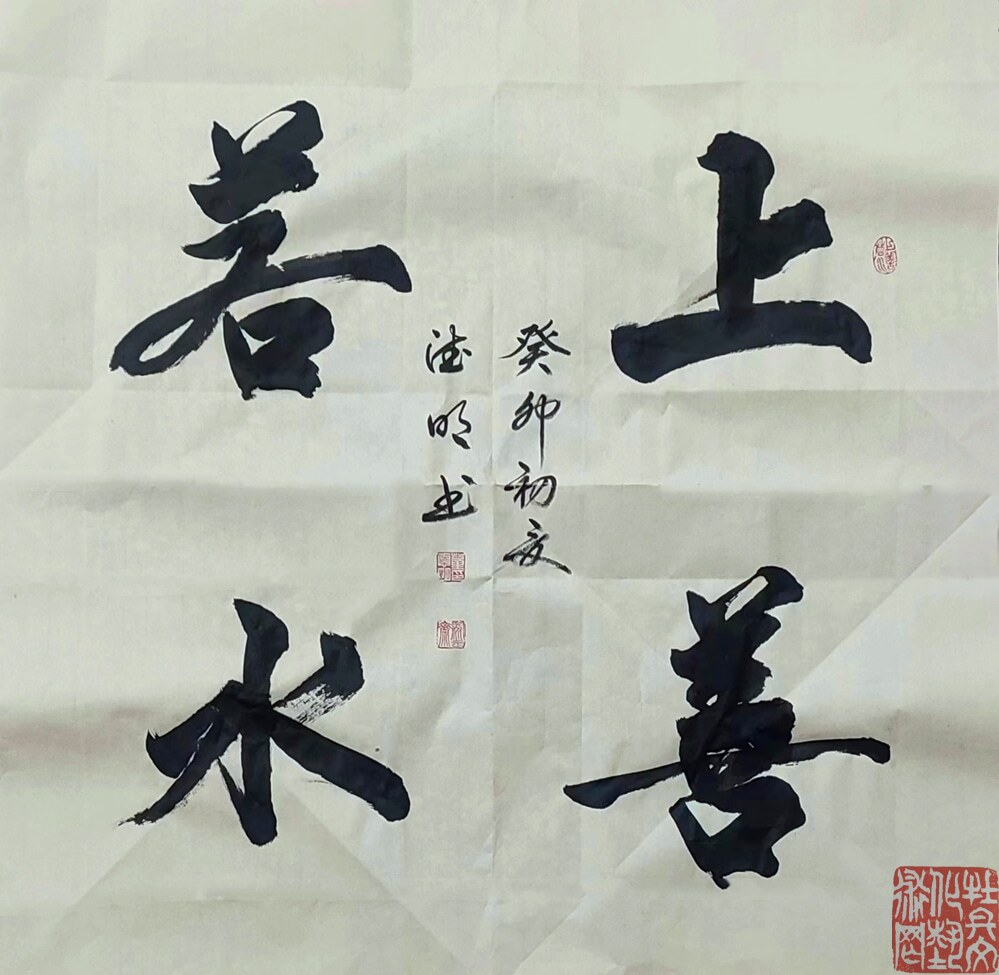 上善
若水
癸卯初夏
德明书